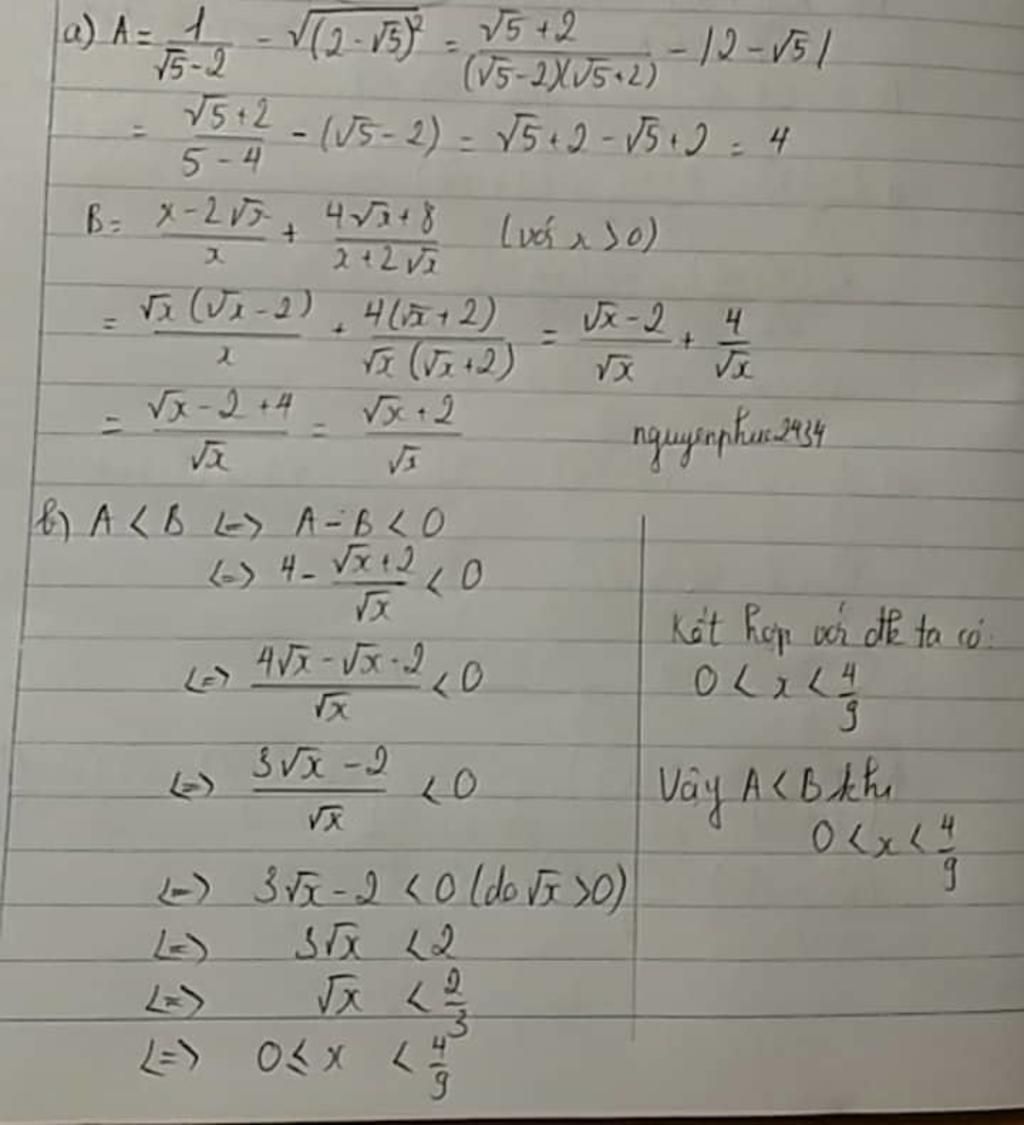 a) A = 1/(√5-2) - √((2-√5)²) = (√5+2)/((√5-2)(√5+2)) - |2-√5|
= (√5+2)/(5-4) - (√5-2) = √5+2-√5+2 = 4
B = (x-2√x)/x + (4√x+8)/(x+2√x) (với x>0)
= √x(√x-2)/x + 4(√x+2)/(√x(√x+2)) = (√x-2)/√x + 4/√x
= (√x-2+4)/√x = (√x+2)/√x
nguyenphuc2434
b) A < B <=> A - B < 0
<=> 4 - (√x+2)/√x < 0
<=> (4√x-√x-2)/√x < 0
<=> (3√x-2)/√x < 0
<=> 3√x-2 < 0 (do √x>0)
<=> 3√x < 2
<=> √x < 2/3
<=> 0 ≤ x < 4/9
Kết hợp với đk ta có:
0 < x < 4/9
Vậy A < B khi
0 < x < 4/9